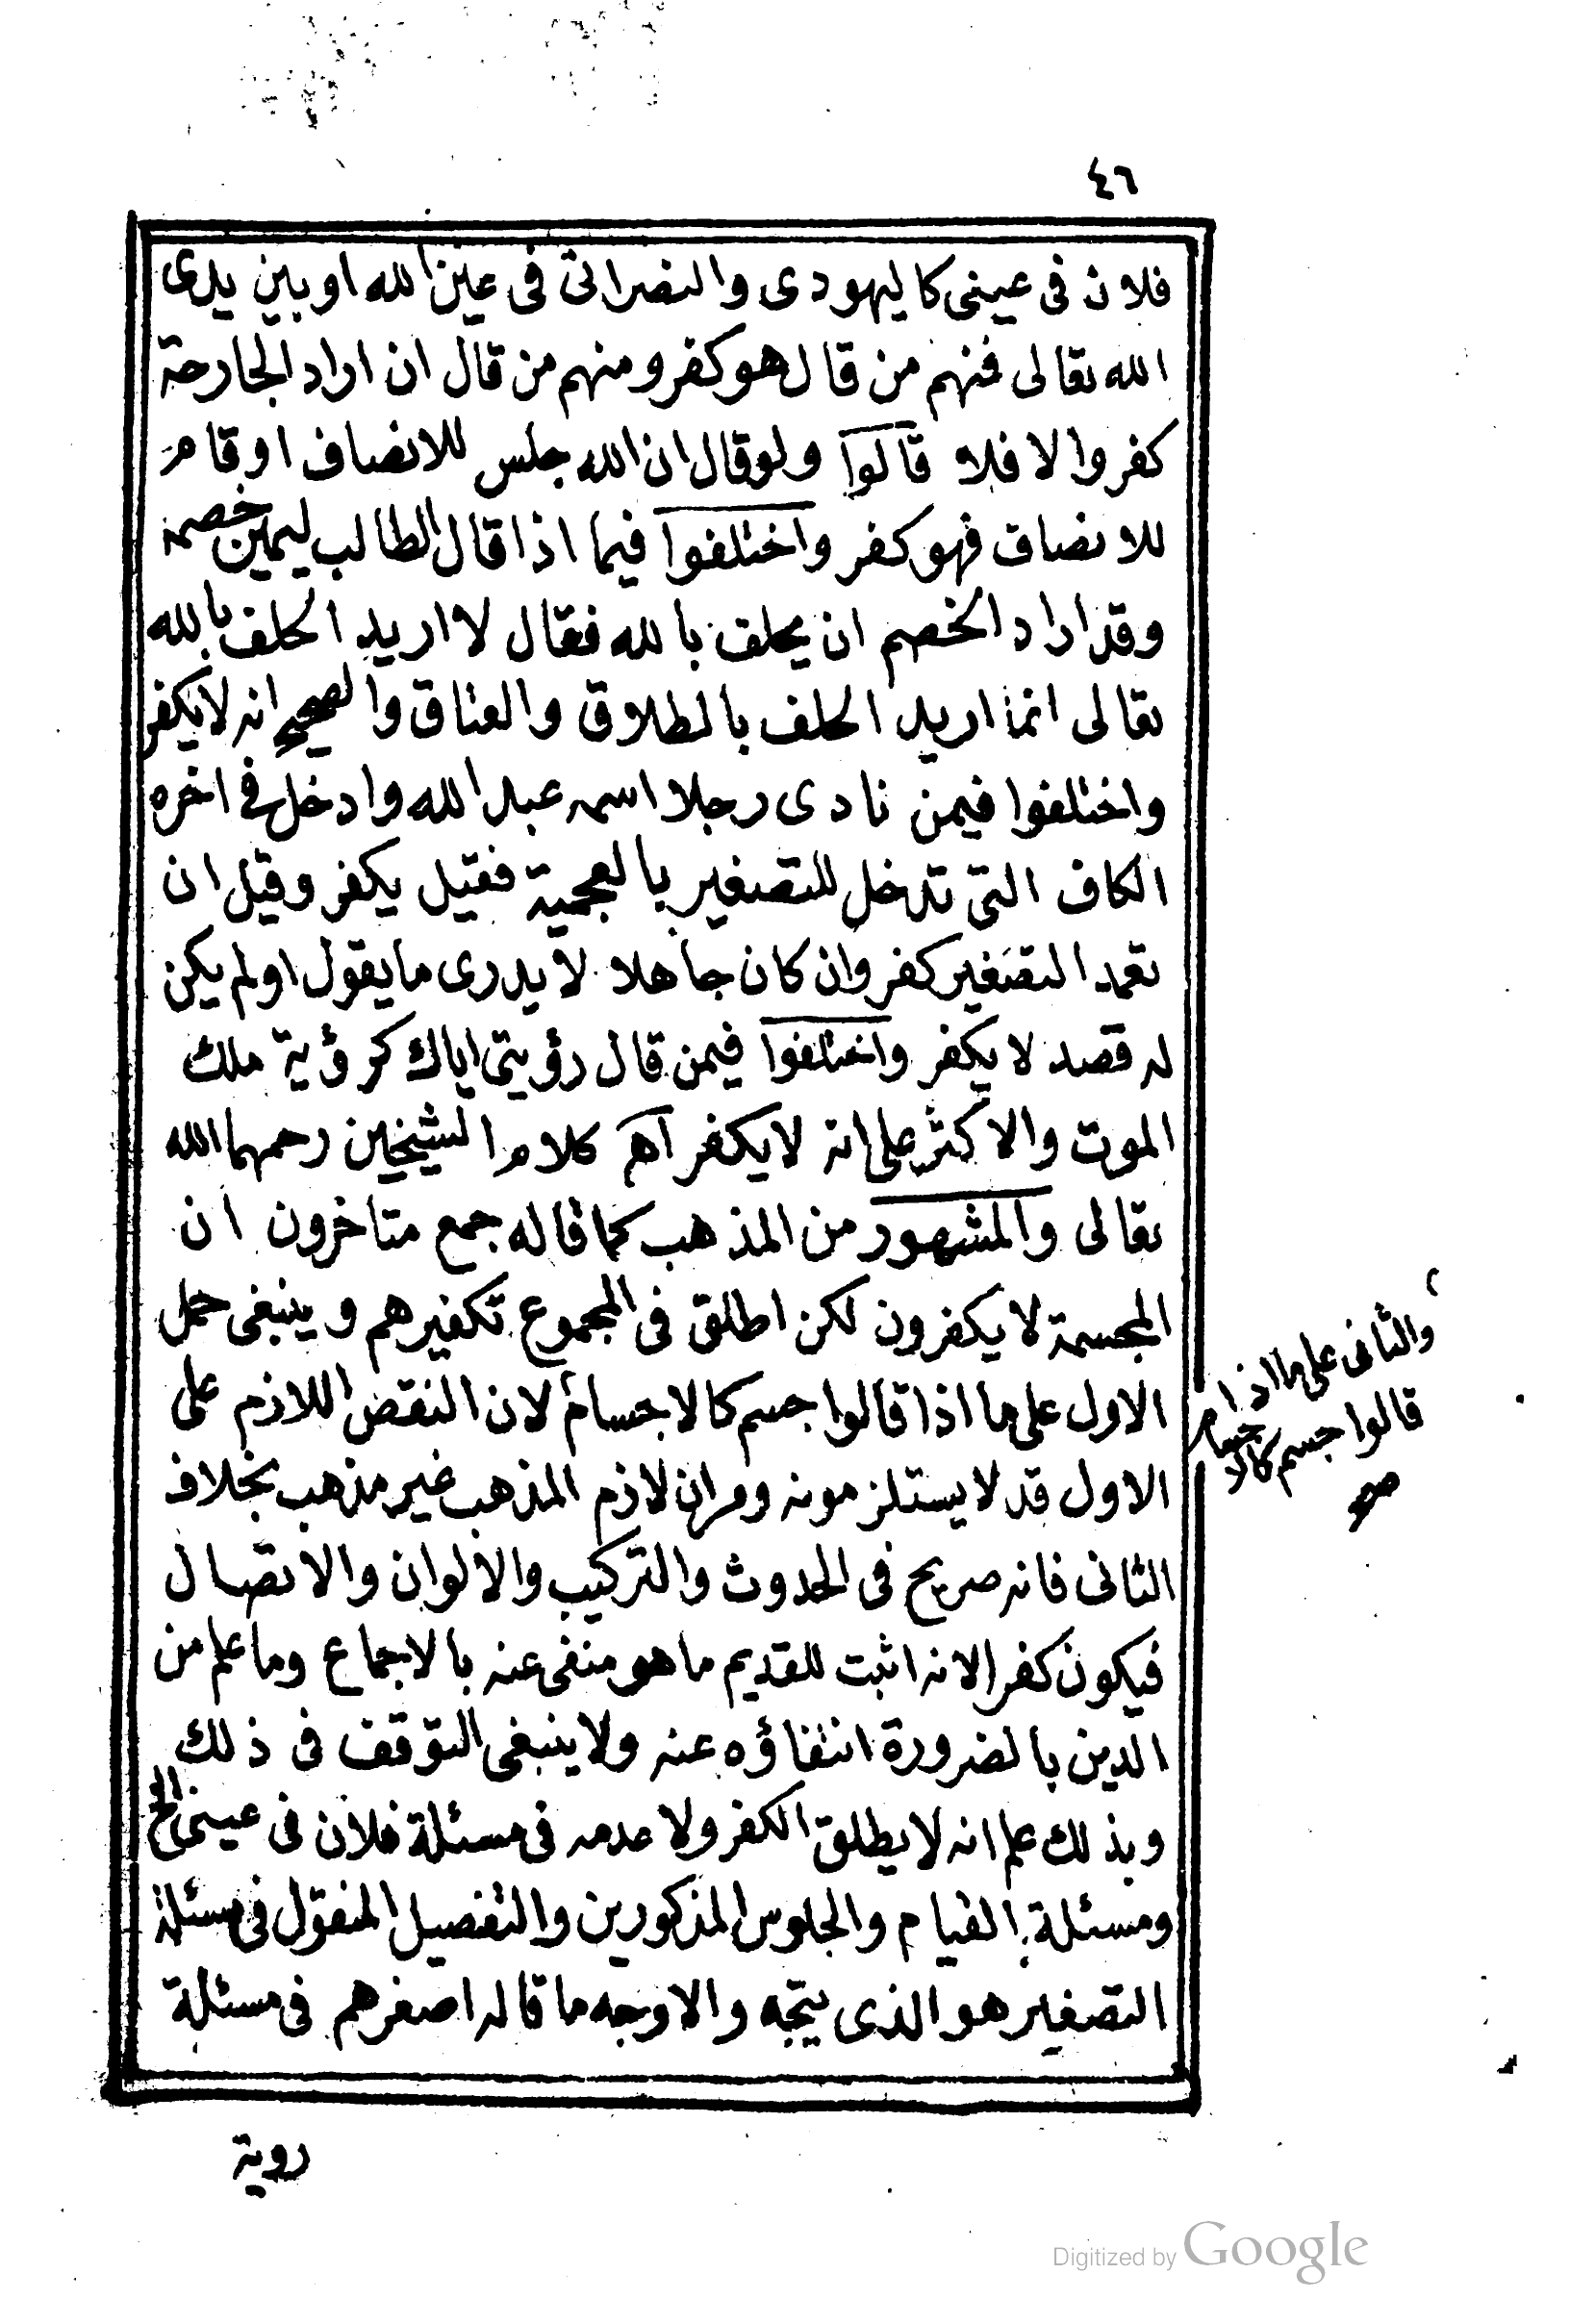 ٤٦
فلان فى عينى كاليهودى والنصرانى فى عين الله او بين يدى
الله تعالى فمنهم من قال هو كفر ومنهم من قال ان اراد الجارحة
كفر والا فلا قالوا ولو قال ان الله جلس للانصاف او قام
للانصاف فهو كفر واختلفوا فيما اذا قال الطالب ليمين خصمه
وقد اراد الخصم ان يحلف بالله فقال لا اريد الحلف بالله
تعالى انما اريد الحلف بالطلاق والعتاق والصحيح انه لا يكفر
واختلفوا فيمن نادى رجلا اسمه عبد الله وادخل فى اخره
الكاف التى تدخل للتصغير بالعجمية فقيل يكفر وقيل ان
تعمد التصغير كفر وان كان جاهلا لا يدرى ما يقول او لم يكن
له قصد لا يكفر واختلفوا فيمن قال رؤيتى اياك كرؤية ملك
الموت والاكثر على انه لا يكفر اهـ كلام الشيخين رحمهما الله
تعالى والمشهور من المذهب كما قاله جمع متاخرون ان
المجسمة لا يكفرون لكن اطلق فى المجموع تكفيرهم وينبغى حمل
الاول على ما اذا قالوا جسم كالاجسام لان النقص اللازم على
الاول قد لا يستلزمونه ومر ان لازم المذهب غير مذهب بخلاف
الثانى فانه صريح فى الحدوث والتركيب والالوان والاتصال
فيكون كفرا لانه اثبت للقديم ما هو منفى عنه بالاجماع وما علم من
الدين بالضرورة انتفاؤه عنه ولا ينبغى التوقف فى ذلك
وبذلك علم انه لا يطلق الكفر ولا عدمه فى مسئلة فلان فى عينى الخ
ومسئلة القيام والجلوس المذكورين والتفصيل المنقول فى مسئلة
التصغير هو الذى يتجه والاوجه ما قاله اصغرهم فى مسئلة
روية
والثانى على ما اذا
قالوا جسم كالاجسام
صح
Digitized by Google